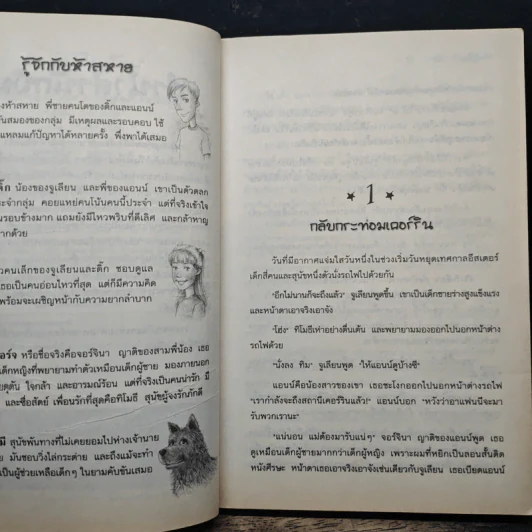 รู้จักกับห้าสหาย
งห้าสหาย พี่ชายคนโตของดิ๊กและแอนน์
นสมองของกลุ่ม มีเหตุผลและรอบคอบ ใช้
แหลมแก้ปัญหาได้หลายครั้ง พึ่งพาได้เสมอ
ก น้องของจูเลียน และพี่ของแอนน์ เขาเป็นตัวตลก
ะจำกลุ่ม คอยแหย่คนโน้นคนนี้ประจำ แต่ที่จริงเข้าใจ
นรอบข้างมาก แถมยังมีไหวพริบที่ดีเลิศ และกล้าหาญ
ากด้วย
วคนเล็กของจูเลียนและดิ๊ก ชอบดูแล
เธอเป็นคนอ่อนไหวที่สุด แต่ก็มีความคิด
พร้อมจะเผชิญหน้ากับความยากลำบาก
อร์จ หรือชื่อจริงคือจอร์จินา ญาติของสามพี่น้อง เธอ
เด็กหญิงที่พยายามทำตัวเหมือนเด็กผู้ชาย มองภายนอก
ดุดัน ใจกล้า และอารมณ์ร้อน แต่ที่จริงเป็นคนน่ารัก มี
และซื่อสัตย์ เพื่อนรักที่สุดคือทิโมธี สุนัขผู้จงรักภักดี
มี สุนัขพันทางที่ไม่เคยยอมไปห่างเจ้านาย
มันชอบวิ่งไล่กระต่าย และถึงแม้จะทำ
เป็นผู้ช่วยเหลือเด็กๆ ในยามคับขันเสมอ
1
กลับกระท่อมเคอร์ริน
วันที่มีอากาศแจ่มใสวันหนึ่งในช่วงเริ่มวันหยุดเทศกาลอีสเตอร์
เด็กสี่คนและสุนัขหนึ่งตัวนั่งรถไฟไปด้วยกัน
"อีกไม่นานก็จะถึงแล้ว" จูเลียนพูดขึ้น เขาเป็นเด็กชายร่างสูงแข็งแรง
และหน้าตาเอาจริงเอาจัง
"โฮ่ง" ทิโมธีเห่าอย่างตื่นเต้น และพยายามมองออกไปนอกหน้าต่าง
รถไฟด้วย
"นั่งลง ทิม" จูเลียนพูด "ให้แอนน์ดูบ้างซี"
แอนน์คือน้องสาวของเขา เธอชะโงกออกไปนอกหน้าต่างรถไฟ
"เรากำลังจะถึงสถานีเคอร์รินแล้ว!" แอนน์บอก "หวังว่าอาแฟนนีจะมา
รับพวกเรานะ"
"แน่นอน แม่ต้องมารับแน่ๆ" จอร์จินา ญาติของแอนน์พูด เธอ
ดูเหมือนเด็กผู้ชายมากกว่าเด็กผู้หญิง เพราะผมที่หยิกเป็นลอนสั้นติด
หนังศีรษะ หน้าตาเธอเอาจริงเอาจังเช่นเดียวกับจูเลียน เธอเบียดแอนน์